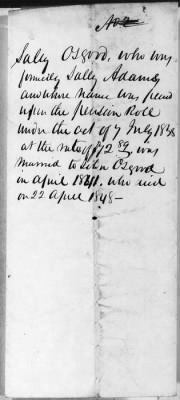 No 2
Sally Osgood, who was
formerly Sally Adams
and whose name was placed
upon the pension Roll
under the act of 7 July 1838
at the rate of $72 89, was
married to John Osgood
in april 1841, who died
on 22 April 1848—